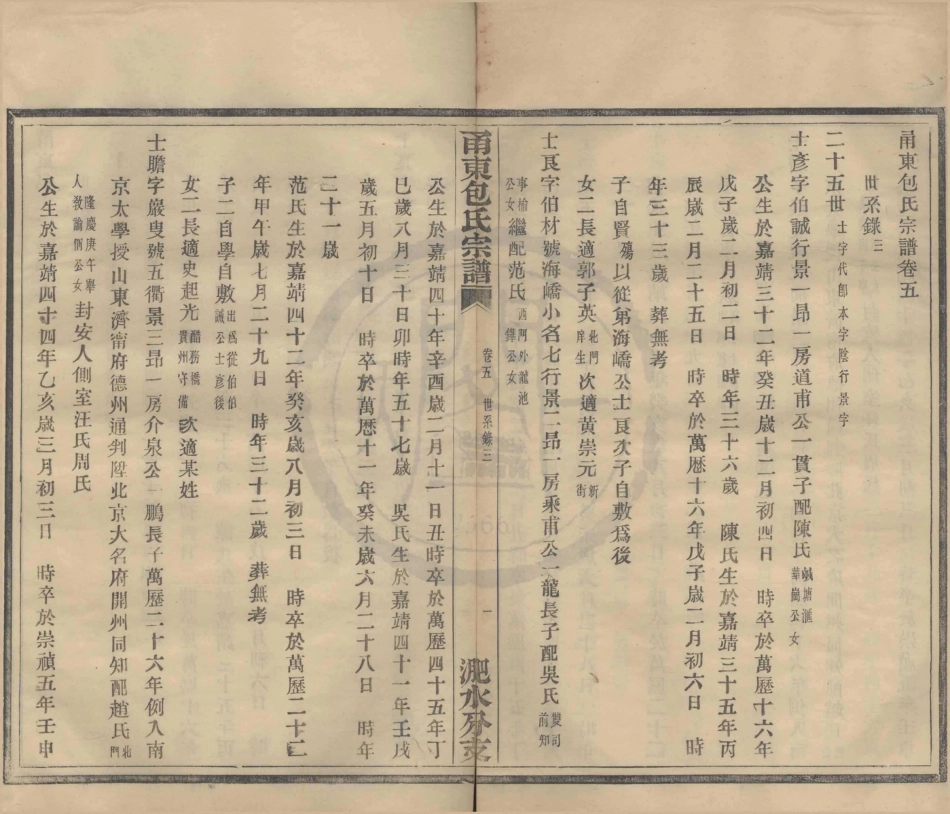 甬東包氏宗譜卷五
世系錄三
二十五世士字代郎本字陰行景字
士彥字伯誠行景一昂一房道甫公一貫子配陳氏鹹塘滙華崗公女
公生於嘉靖三十二年癸丑歲十二月初四日 時卒於萬歷十六年
戊子歲二月初二日 時年三十六歲 陳氏生於嘉靖三十五年丙
辰歲二月二十五日 時卒於萬歷十六年戊子歲二月初六日 時
年三十三歲 葬無考
子自賢殤以從弟海嶠公士良次子自敷爲後
女二長適郭子英北門庠生次適黃崇元新街
士良字伯材號海嶠小名七行景二昂一房乘甫公一龍長子配吳氏製司前知
事榆公女繼配范氏西門外龍池鏵公女
公生於嘉靖四十年辛酉歲二月十一日丑時卒於萬歷四十五年丁
巳歲八月三十日卯時年五十七歲 吳氏生於嘉靖四十一年壬戌
歲五月初十日 時卒於萬曆十一年癸未歲六月二十八日 時年
二十一歲
范氏生於嘉靖四十二年癸亥歲八月初三日 時卒於萬歷二十二
年甲午歲七月二十九日 時年三十二歲 葬無考
子二自學自敷出爲從伯伯誠公士彥後
女二長適史起光醋務橋貴州守備次適某姓
士瞻字嚴叟號五衢景三昂一房介泉公一鵬長子萬歷二十六年例入南
京太學授山東濟甯府德州通判陞北京大名府開州同知配趙氏北門
人隆慶庚午舉教諭侗公女封安人側室汪氏周氏
公生於嘉靖四十四年乙亥歲三月初三日 時卒於崇禎五年壬申
甬東包氏宗譜
卷五 世系錄三
一
淝水分支